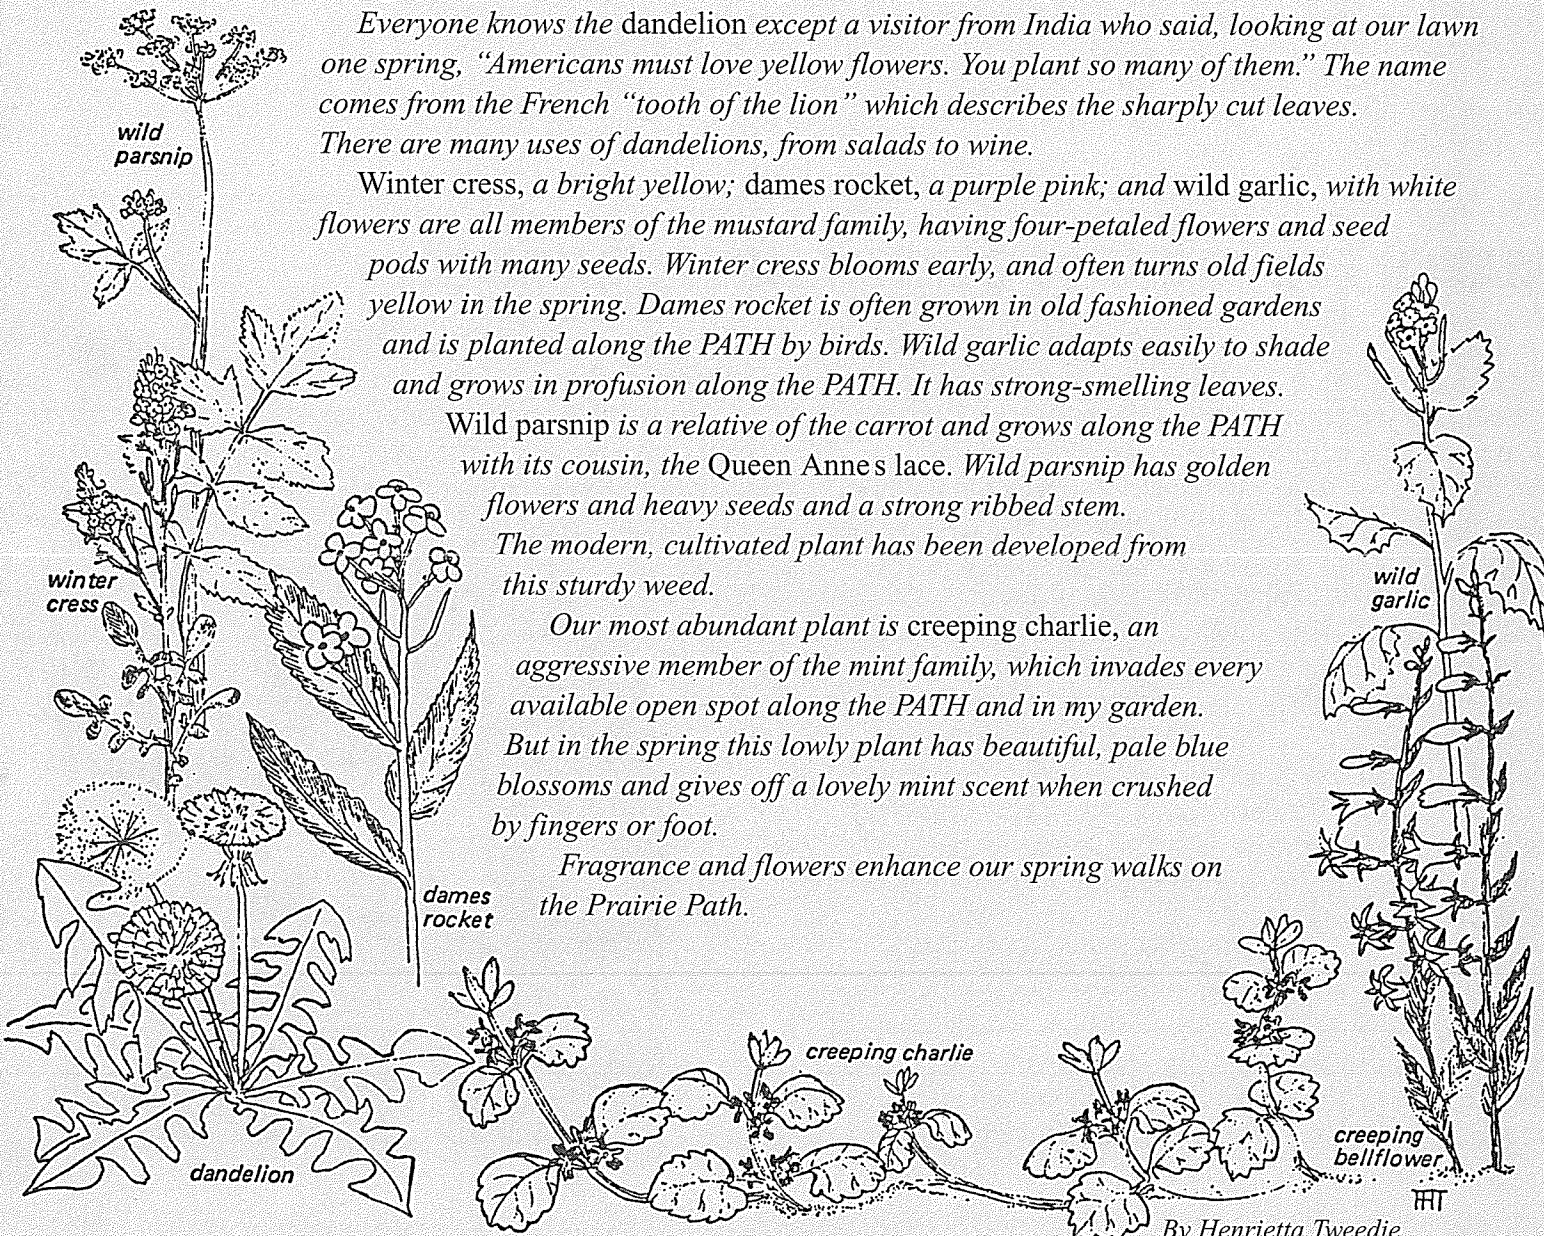 Everyone knows the dandelion except a visitor from India who said, looking at our lawn
one spring, “Americans must love yellow flowers. You plant so many of them.” The name
comes from the French “tooth of the lion” which describes the sharply cut leaves.
There are many uses of dandelions, from salads to wine.
Winter cress, a bright yellow; dames rocket, a purple pink; and wild garlic, with white
flowers are all members of the mustard family, having four-petaled flowers and seed
pods with many seeds. Winter cress blooms early, and often turns old fields
yellow in the spring. Dames rocket is often grown in old fashioned gardens
and is planted along the PATH by birds. Wild garlic adapts easily to shade
and grows in profusion along the PATH. It has strong-smelling leaves.
Wild parsnip is a relative of the carrot and grows along the PATH
with its cousin, the Queen Anne s lace. Wild parsnip has golden
flowers and heavy seeds and a strong ribbed stem.
The modern, cultivated plant has been developed from
this sturdy weed.
Our most abundant plant is creeping charlie, an
aggressive member of the mint family, which invades every
available open spot along the PATH and in my garden.
But in the spring this lowly plant has beautiful, pale blue
blossoms and gives off a lovely mint scent when crushed
by fingers or foot.
Fragrance and flowers enhance our spring walks on
the Prairie Path.
wild
parsnip
winter
cress
dames
rocket
dandelion
creeping charlie
wild
garlic
creeping
bellflower
By Henrietta Tweedie